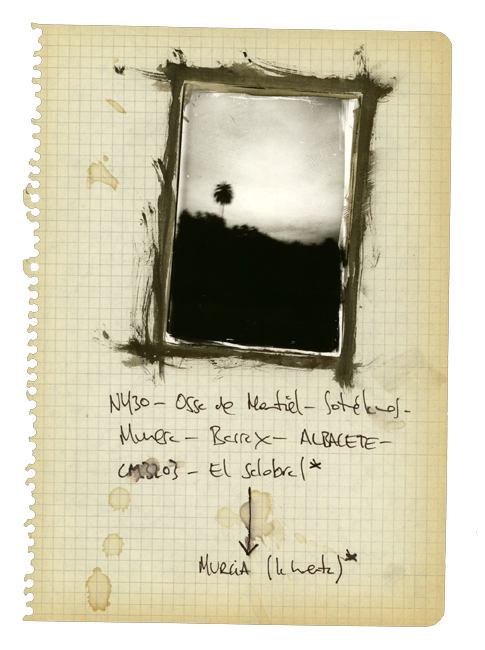 N430 - Ossa de Montiel - Sotuélamos -
Munera - Barrax - ALBACETE -
CM3203 - El salobral *
MURCIA (la huerta) *